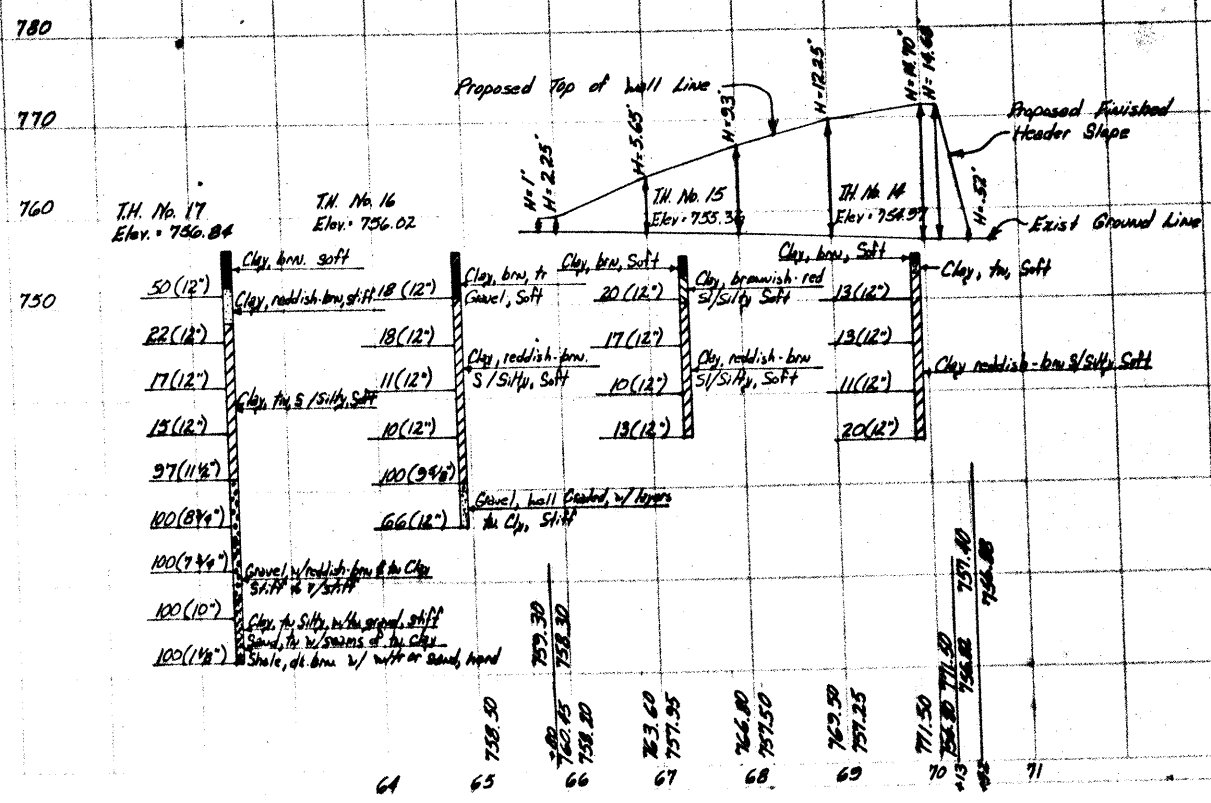 780
770
760
750
Proposed Top of Wall Line
Proposed Finished
Header Slope
Exist Ground Line
H=1'
H=2.25'
H=5.65'
H=9.3'
H=12.25'
H=14.70'
H=14.68'
H=.52'
T.H. No. 17
Elev. = 756.84
T.H. No. 16
Elev. = 756.02
T.H. No. 15
Elev = 755.36
T.H. No. 14
Elev = 754.97
Clay, brn. soft
50 (12")
Clay, reddish-brn, stiff
22 (12")
17 (12")
Clay, tn, S/Silty, Soft
15 (12")
97 (11½")
100 (8¾")
100 (7¾")
Gravel w/reddish-brn & tn Clay
Stiff to v/stiff
100 (10")
Clay, tn Silty, w/tn gravel, stiff
Sand, tn w/seams of tn Clay
100 (1⅛")
Shale, dk. brn w/ sand, hard
18 (12")
Clay, brn, tr
Gravel, Soft
18 (12")
Clay, reddish-brn.
S/Silty, Soft
11 (12")
10 (12")
100 (9⅝")
Gravel, well Graded, w/ layers
tn Cly, Stiff
66 (12")
Clay, brn, Soft
20 (12")
Clay, brownish-red
Sl/Silty Soft
17 (12")
Clay, reddish-brn
Sl/Silty, Soft
10 (12")
13 (12")
Clay, brn, Soft
Clay, tn, Soft
13 (12")
13 (12")
Clay reddish-brn S/Silty Soft
11 (12")
20 (12")
758.50
759.30
758.30
+80
760.45
758.20
763.60
757.95
766.80
757.50
769.50
757.25
771.50
756.90
771.50
756.82
757.40
756.88
64
65
66
67
68
69
70
+13
+52
71